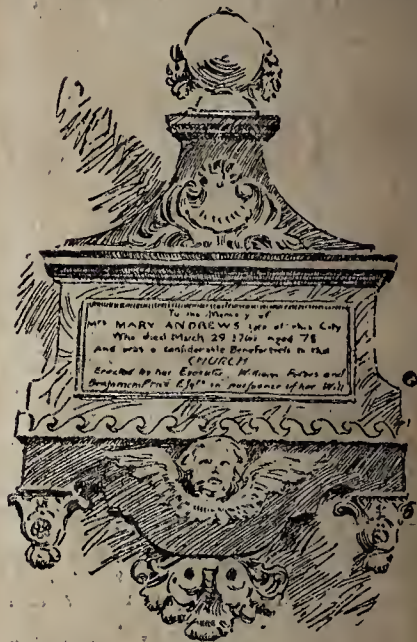 To the Memory of
Mrs MARY ANDREWS late of this City
Who died March 29 176 aged 78
and was a considerable Benefactress to this
CHURCH
Erected by her Executors William Forbes and
Benjamin Price Esqrs in pursuance of her Will